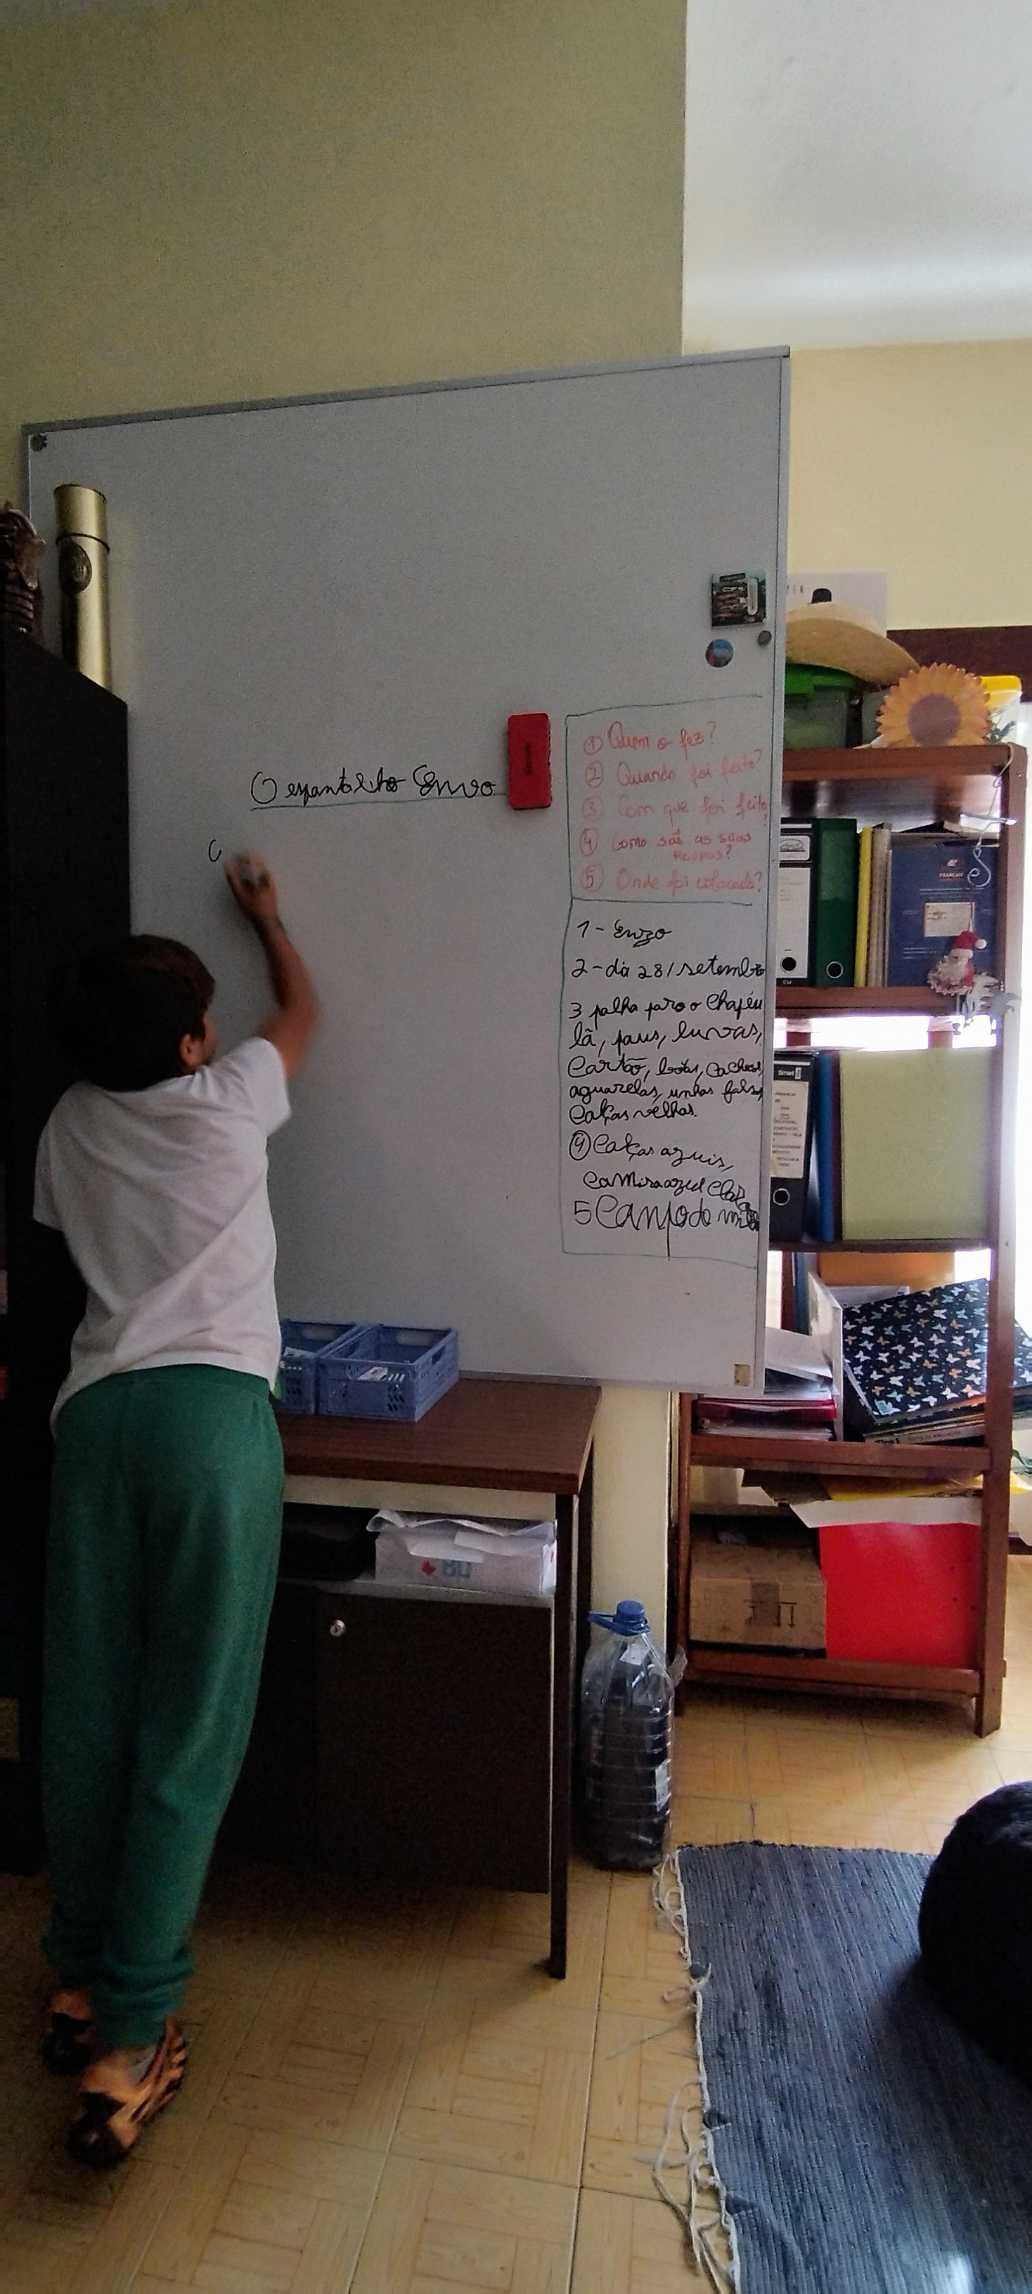 O espantalho Enzo
① Quem o fez?
② Quando foi feito?
③ Com que foi feito?
④ Como são as suas
roupas?
⑤ Onde foi colocado?
1 - Enzo
2 - dia 28/setembro
3 palha para o Chapéu
lã, paus, luvas,
Cartão, botas,
aguarelas, unhas falsas
Calças velhas.
④ Calças azuis,
Camisa azul
5 Campo do
FRANÇAIS